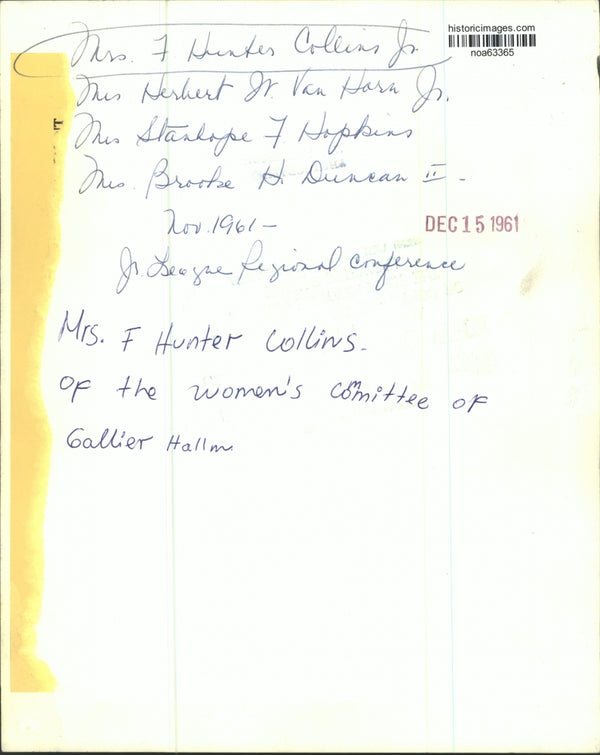 historicimages.com
noa63365
Mrs. F Hunter Collins Jr.
Mrs Herbert W. Van Horn Jr.
Mrs Stanhope F Hopkins
Mrs. Brooke H. Duncan II -
Nov. 1961 -
DEC 15 1961
Jr. League Regional Conference
Mrs. F Hunter Collins.
OF the women's comittee OF
Gallier Hall